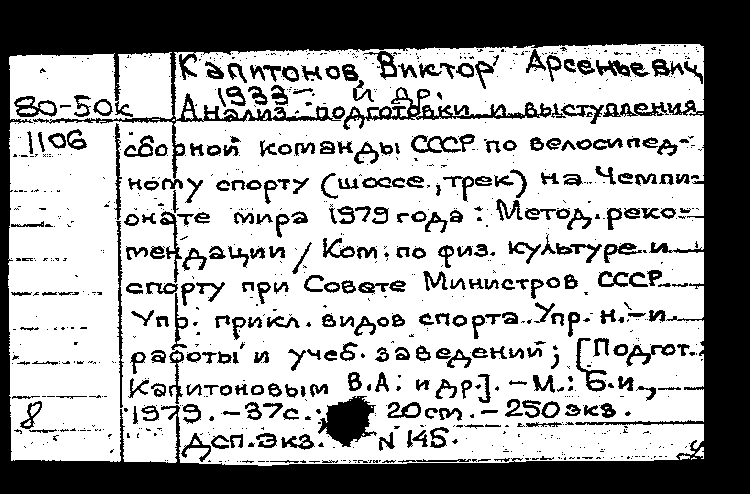 Капитонов Виктор Арсеньевич
1933- и др.
80-50к Анализ подготовки и выступления
1106 сборной команды СССР по велосипед-
ному спорту (шоссе, трек) на Чемпи-
онате мира 1979 года: Метод. реко-
мендации / Ком. по физ. культуре и
спорту при Совете Министров СССР.
Упр. прикл. видов спорта. Упр. н.-и.
работы и учеб. заведений; [Подгот.:
Капитоновым В.А. и др.]. - М.: Б.и.,
8 1979. - 37с.; 20см. - 250экз.
Дсп. Экз. N 145.